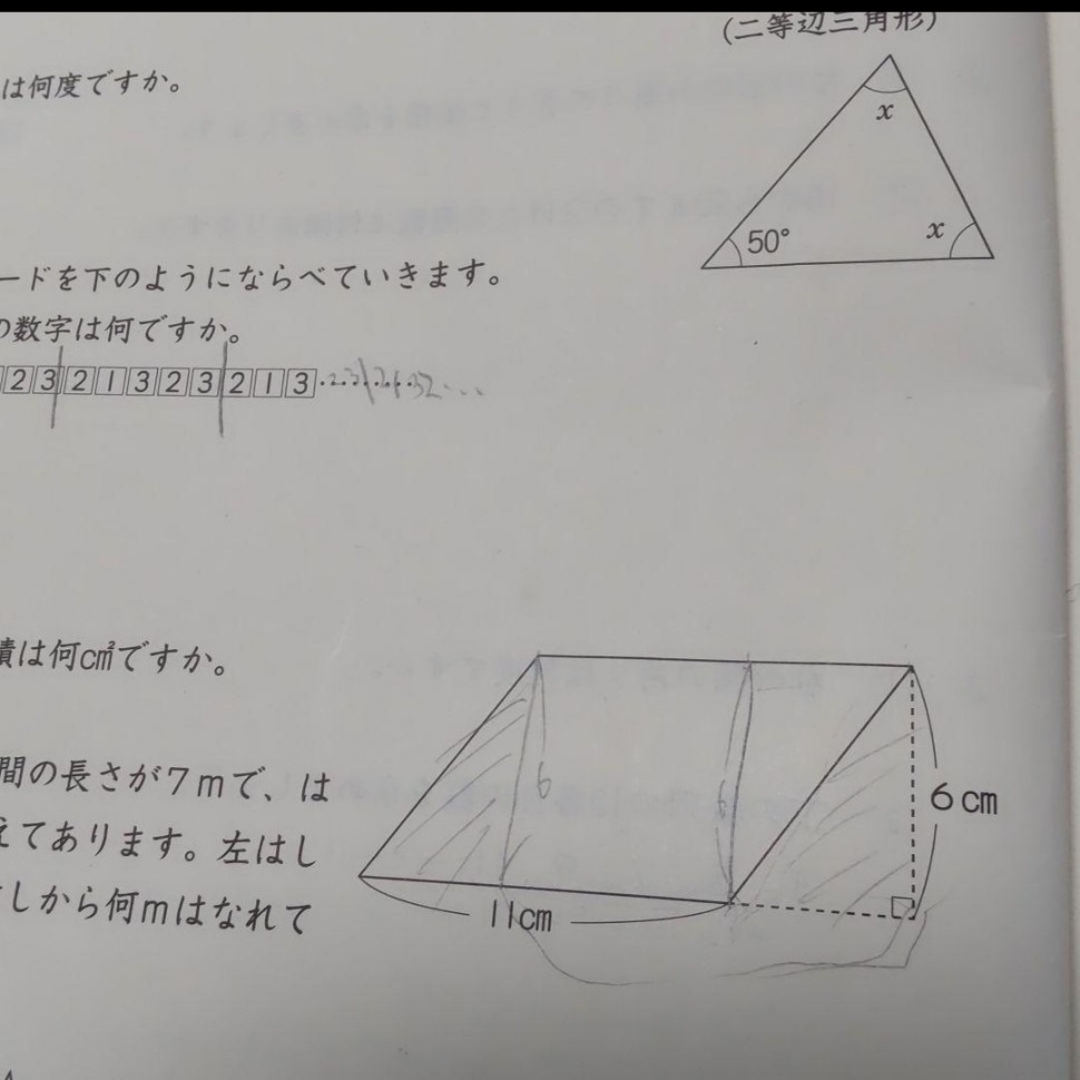 (二等辺三角形)
は何度ですか。
x
50°
x
ードを下のようにならべていきます。
の数字は何ですか。
2 3 2 1 3 2 3 2 1 3 ………
積は何cm²ですか。
間の長さが7mで、は
えてあります。左はし
しから何mはなれて
6
6
6cm
11cm